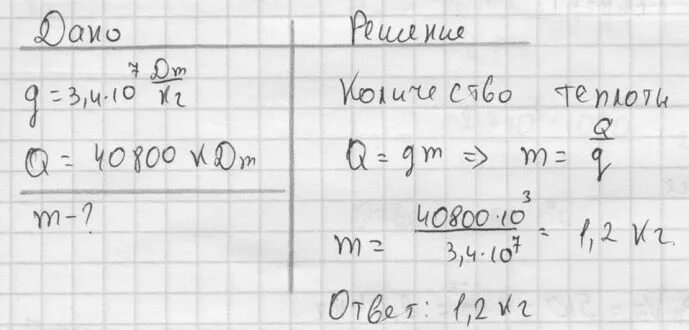 Дано
q = 3,4·10⁷ Дж/кг
Q = 40800 кДж
m - ?
Решение
Количество теплоты
Q = qm ⇒ m = Q/q
m = 40800·10³/3,4·10⁷ = 1,2 кг.
Ответ: 1,2 кг